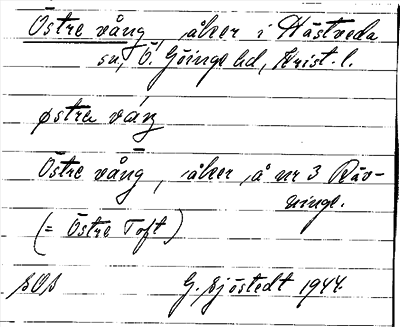 Östre vång, åker i Hästveda
sn, Ö. Göinge hd, Krist. l.
østrə váŋ
Östre vång, åker å nr 3 Röv-
inge.
(= Östre Toft)
G. Sjöstedt 1944.